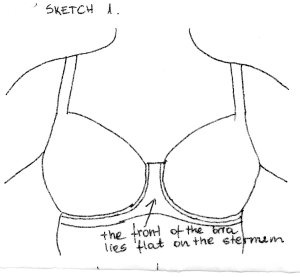 SKETCH 1.
the front of the bra
lies flat on the sternum